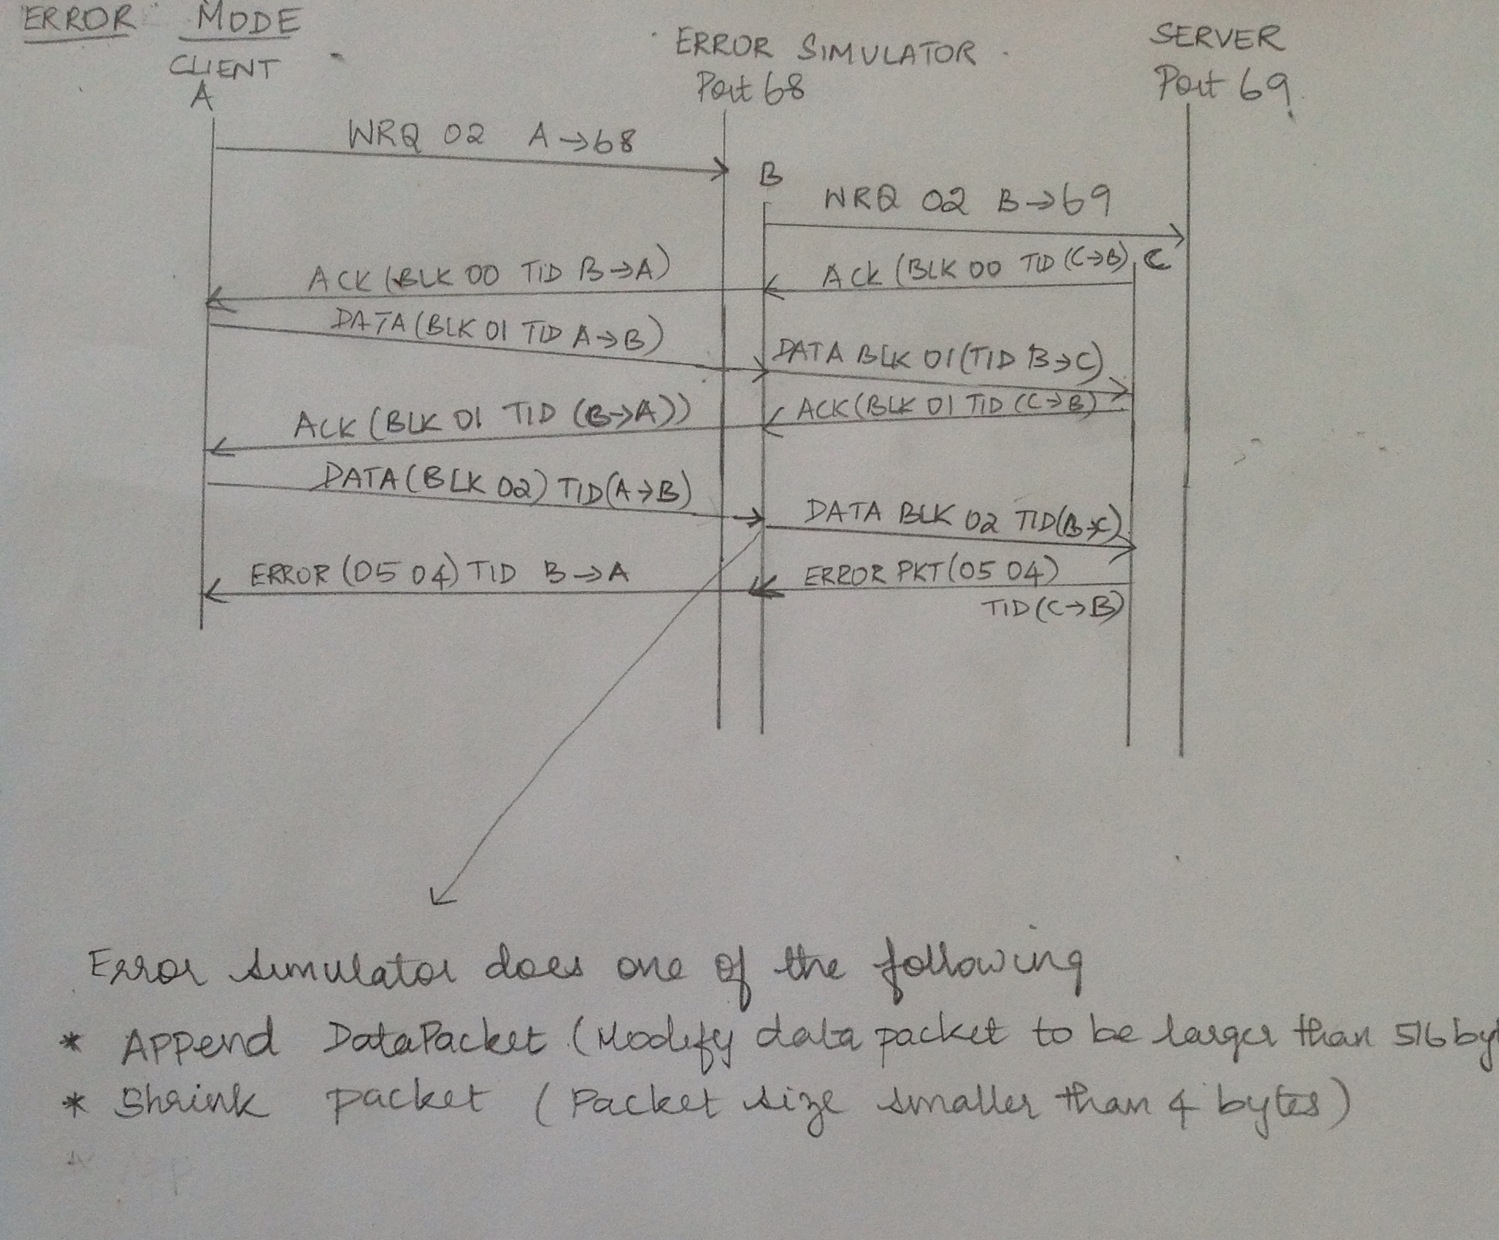 ERROR MODE
CLIENT
A
ERROR SIMULATOR
Port 68
SERVER
Port 69
WRQ 02 A→68
B
WRQ 02 B→69
ACK (BLK 00 TID B→A)
ACK (BLK 00 TID (C→B)
C
DATA (BLK 01 TID A→B)
DATA BLK 01 (TID B→C)
ACK (BLK 01 TID (B→A))
ACK (BLK 01 TID (C→B)
DATA (BLK 02) TID (A→B)
DATA BLK 02 TID (B→C)
ERROR (05 04) TID B→A
ERROR PKT (05 04)
TID (C→B)
Error simulator does one of the following
* Append DataPacket (Modify data packet to be larger than 516 byt
* Shrink packet (Packet size smaller than 4 bytes)